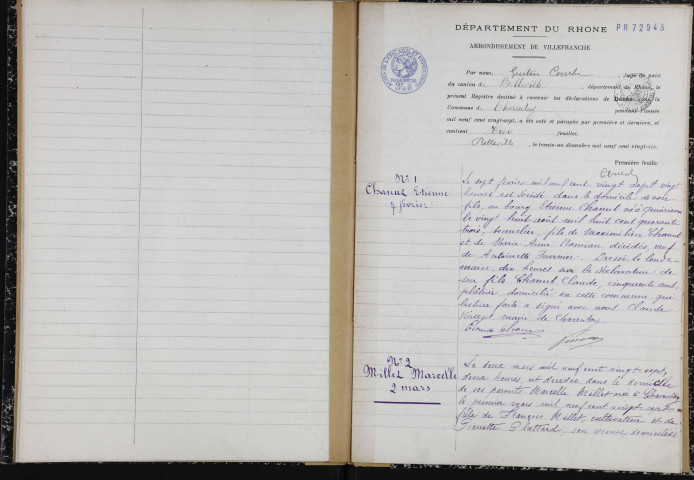 DÉPARTEMENT DU RHONE PH 72945
ARRONDISSEMENT DE VILLEFRANCHE
Par nous, Juge de paix
du canton de Belleville, département du Rhône, le
présent Registre destiné à recevoir les déclarations de Décès dans la
Commune de Charentay pendant l'année
mil neuf cent vingt-sept, a été coté et paraphé par première et dernière, et
contient feuilles.
Belleville, le trente-un décembre mil neuf cent vingt-six.
Première feuille
N° 1
Chanut Etienne
7 février
Le sept février mil neuf cent vingt sept vingt
heures est décédé dans le domicile de son
fils, au bourg Etienne Chanut né à
le vingt huit août mil huit cent quarante
trois, tonnelier, fils de Maximilien Chanut
et de Marie Anne décédés, veuf
de Antoinette Fournier. Dressé le lende-
main, dix heures sur la déclaration de
son fils Chanut Claude, cinquante ans,
plâtrier domicilié en cette commune, qui
lecture faite a signé avec nous Claude
Vincent maire de Charentay
N° 2
Millet Marcelle
2 mars
Le deux mars mil neuf cent vingt sept,
deux heures est décédée dans le domicile
de ses parents Marcelle Millet née à Charentay
le premier mars mil neuf cent vingt sept
fille de François Millet, cultivateur et de
Pierrette Glattard, son épouse domiciliés